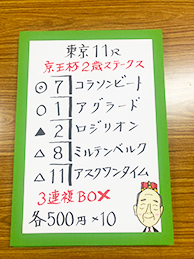 東京11R
京王杯2歳ステークス
◎7コラソンビート
○1アグラード
▲2ロジリオン
△8ミルテンベルク
△11アスクワンタイム
3連複BOX
各500円×10